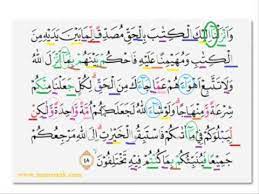 وَأَنزَلْنَآ إِلَيْكَ ٱلْكِتَٰبَ بِٱلْحَقِّ مُصَدِّقًا لِّمَا بَيْنَ يَدَيْهِ مِنَ
ٱلْكِتَٰبِ وَمُهَيْمِنًا عَلَيْهِ فَٱحْكُم بَيْنَهُم بِمَآ أَنزَلَ ٱللَّهُ
وَلَا تَتَّبِعْ أَهْوَآءَهُمْ عَمَّا جَآءَكَ مِنَ ٱلْحَقِّ لِكُلٍّ جَعَلْنَا مِنكُمْ
شِرْعَةً وَمِنْهَاجًا وَلَوْ شَآءَ ٱللَّهُ لَجَعَلَكُمْ أُمَّةً وَٰحِدَةً وَلَٰكِن
لِّيَبْلُوَكُمْ فِى مَآ ءَاتَىٰكُمْ فَٱسْتَبِقُوا۟ ٱلْخَيْرَٰتِ إِلَى ٱللَّهِ مَرْجِعُكُمْ
جَمِيعًا فَيُنَبِّئُكُم بِمَا كُنتُمْ فِيهِ تَخْتَلِفُونَ ٤٨